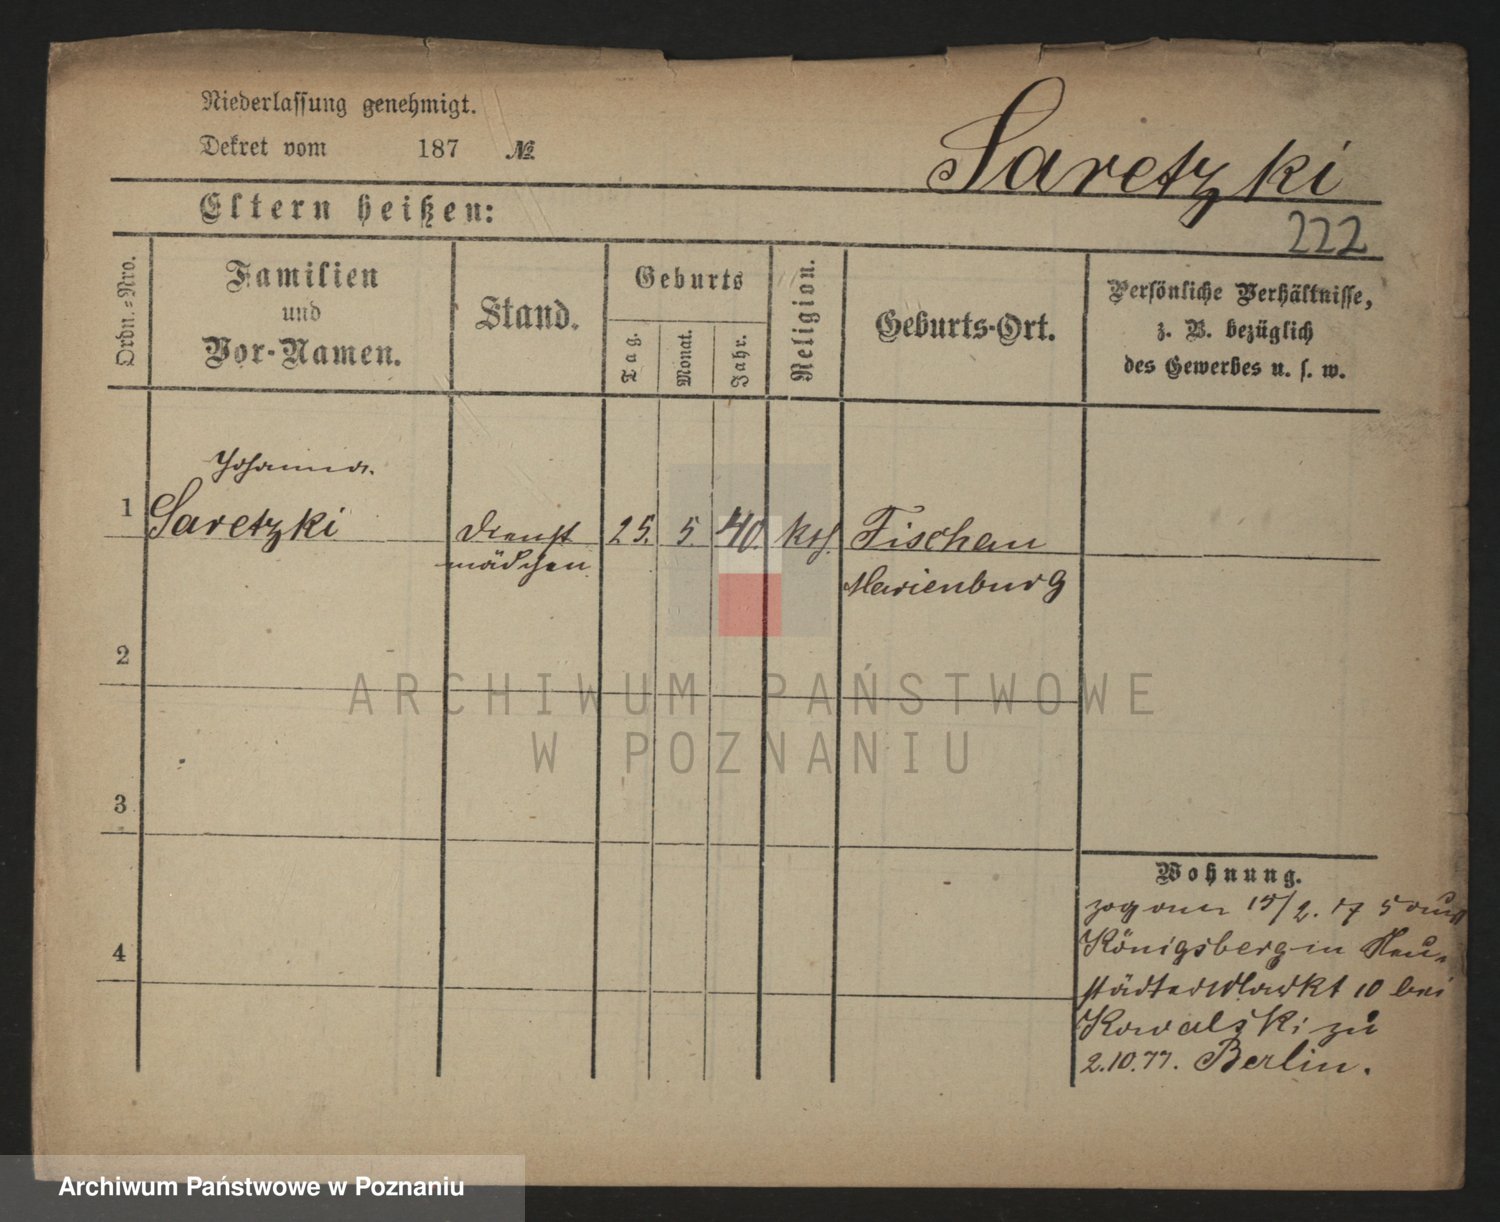 Niederlassung genehmigt.
Dekret vom 187 №
Saretzki
Eltern heißen:
222
Ordn.-Nro.
Familien
und
Vor-Namen.
Stand.
Geburts
Tag.
Monat.
Jahr.
Religion.
Geburts-Ort.
Persönliche Verhältnisse,
z. B. bezüglich
des Gewerbes u. s. w.
Johanna.
1 Saretzki Dienst 25. 5. 40. kth. Fischau
mädchen Marienburg
2
3
4
Wohnung.
zog am 15/2. 77
Königsberg in Neu-
städter Markt 10 bei
Kowalski zu
2.10.77. Berlin.
ARCHIWUM PAŃSTWOWE
W POZNANIU
Archiwum Państwowe w Poznaniu